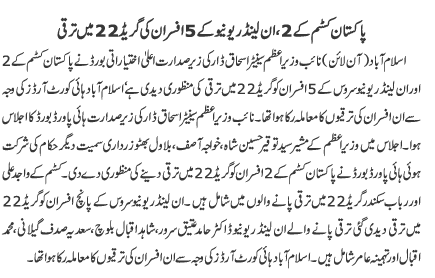 پاکستان کسٹم کے 2، ان لینڈ ریونیو کے 5 افسران کی گریڈ 22 میں ترقی
اسلام آباد (آن لائن) نائب وزیر اعظم سینیٹر اسحاق ڈار کی زیر صدارت اعلیٰ اختیاراتی بورڈ نے پاکستان کسٹم کے 2
اور ان لینڈ ریونیو سروس کے 5 افسران کو گریڈ 22 میں ترقی کی منظوری دیدی ہے اسلام آباد ہائی کورٹ آرڈرز کی وجہ
سے ان افسران کی ترقیوں کا معاملہ رکا ہوا تھا۔ نائب وزیر اعظم سینیٹر اسحاق ڈار کی زیر صدارت ہائی پاور بورڈ کا اجلاس
ہوا۔ اجلاس میں وزیر اعظم کے مشیر سید توقیر حسین شاہ، خواجہ آصف، بلاول بھٹو زرداری سمیت دیگر حکام کی شرکت
ہوئی ہائی پاور بورڈ نے پاکستان کسٹم کے 2 افسران کو گریڈ 22 میں ترقی دینے کی منظوری دے دی۔ کسٹم کے واجد علی
اور رباب سکندر گریڈ 22 میں ترقی پانے والوں میں شامل ہیں۔ ان لینڈ ریونیو سروس کے پانچ افسران کو گریڈ 22
میں ترقی دیدی گئی ترقی پانے والے ان لینڈ ریونیو ڈاکٹر حامد عتیق سرور، شاہد اقبال بلوچ، سعدیہ صدف گیلانی، محمد
اقبال اور تہمینہ عامر شامل ہیں۔ اسلام آباد ہائی کورٹ آرڈرز کی وجہ سے ان افسران کی ترقیوں کا معاملہ رکا ہوا تھا۔